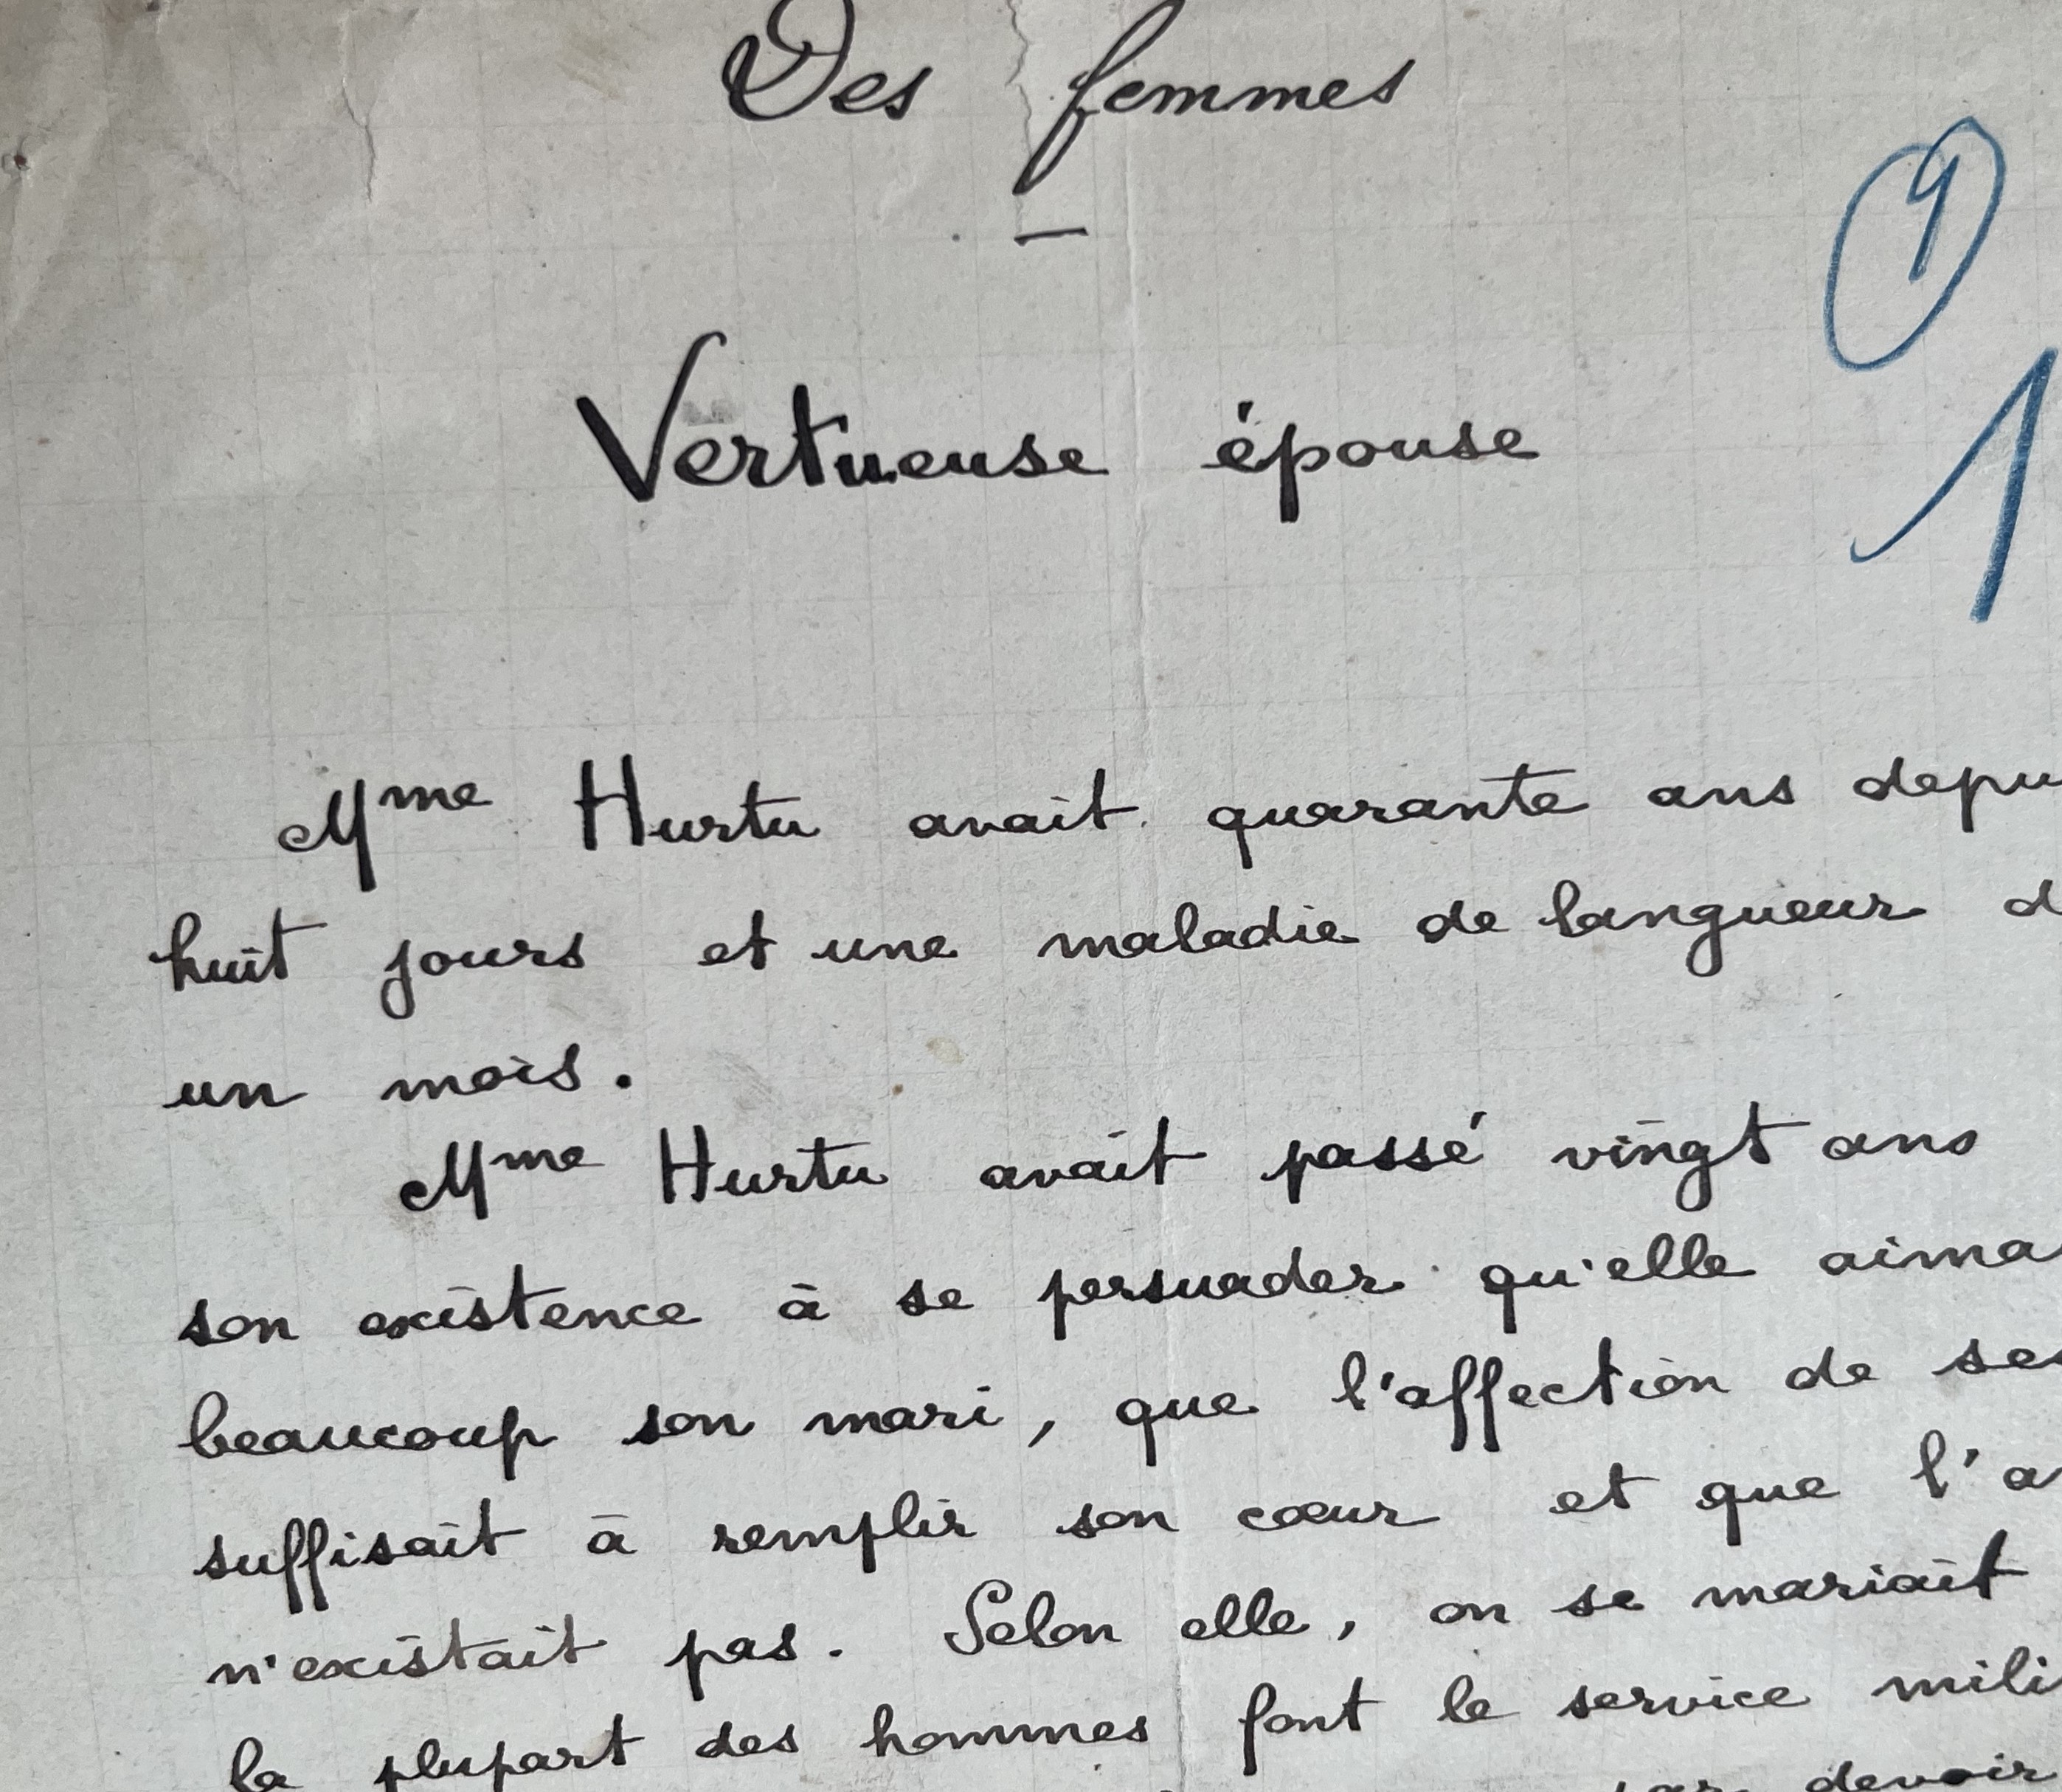 Des femmes
—
1
Vertueuse épouse
1
Mme Hurtu avait quarante ans depu
huit jours et une maladie de langueur d
un mois.
Mme Hurtu avait passé vingt ans
son existence à se persuader qu'elle aima
beaucoup son mari, que l'affection de ses
suffisait à remplir son cœur et que l'a
n'existait pas. Selon elle, on se mariait
la plupart des hommes font le service mili
par devoir